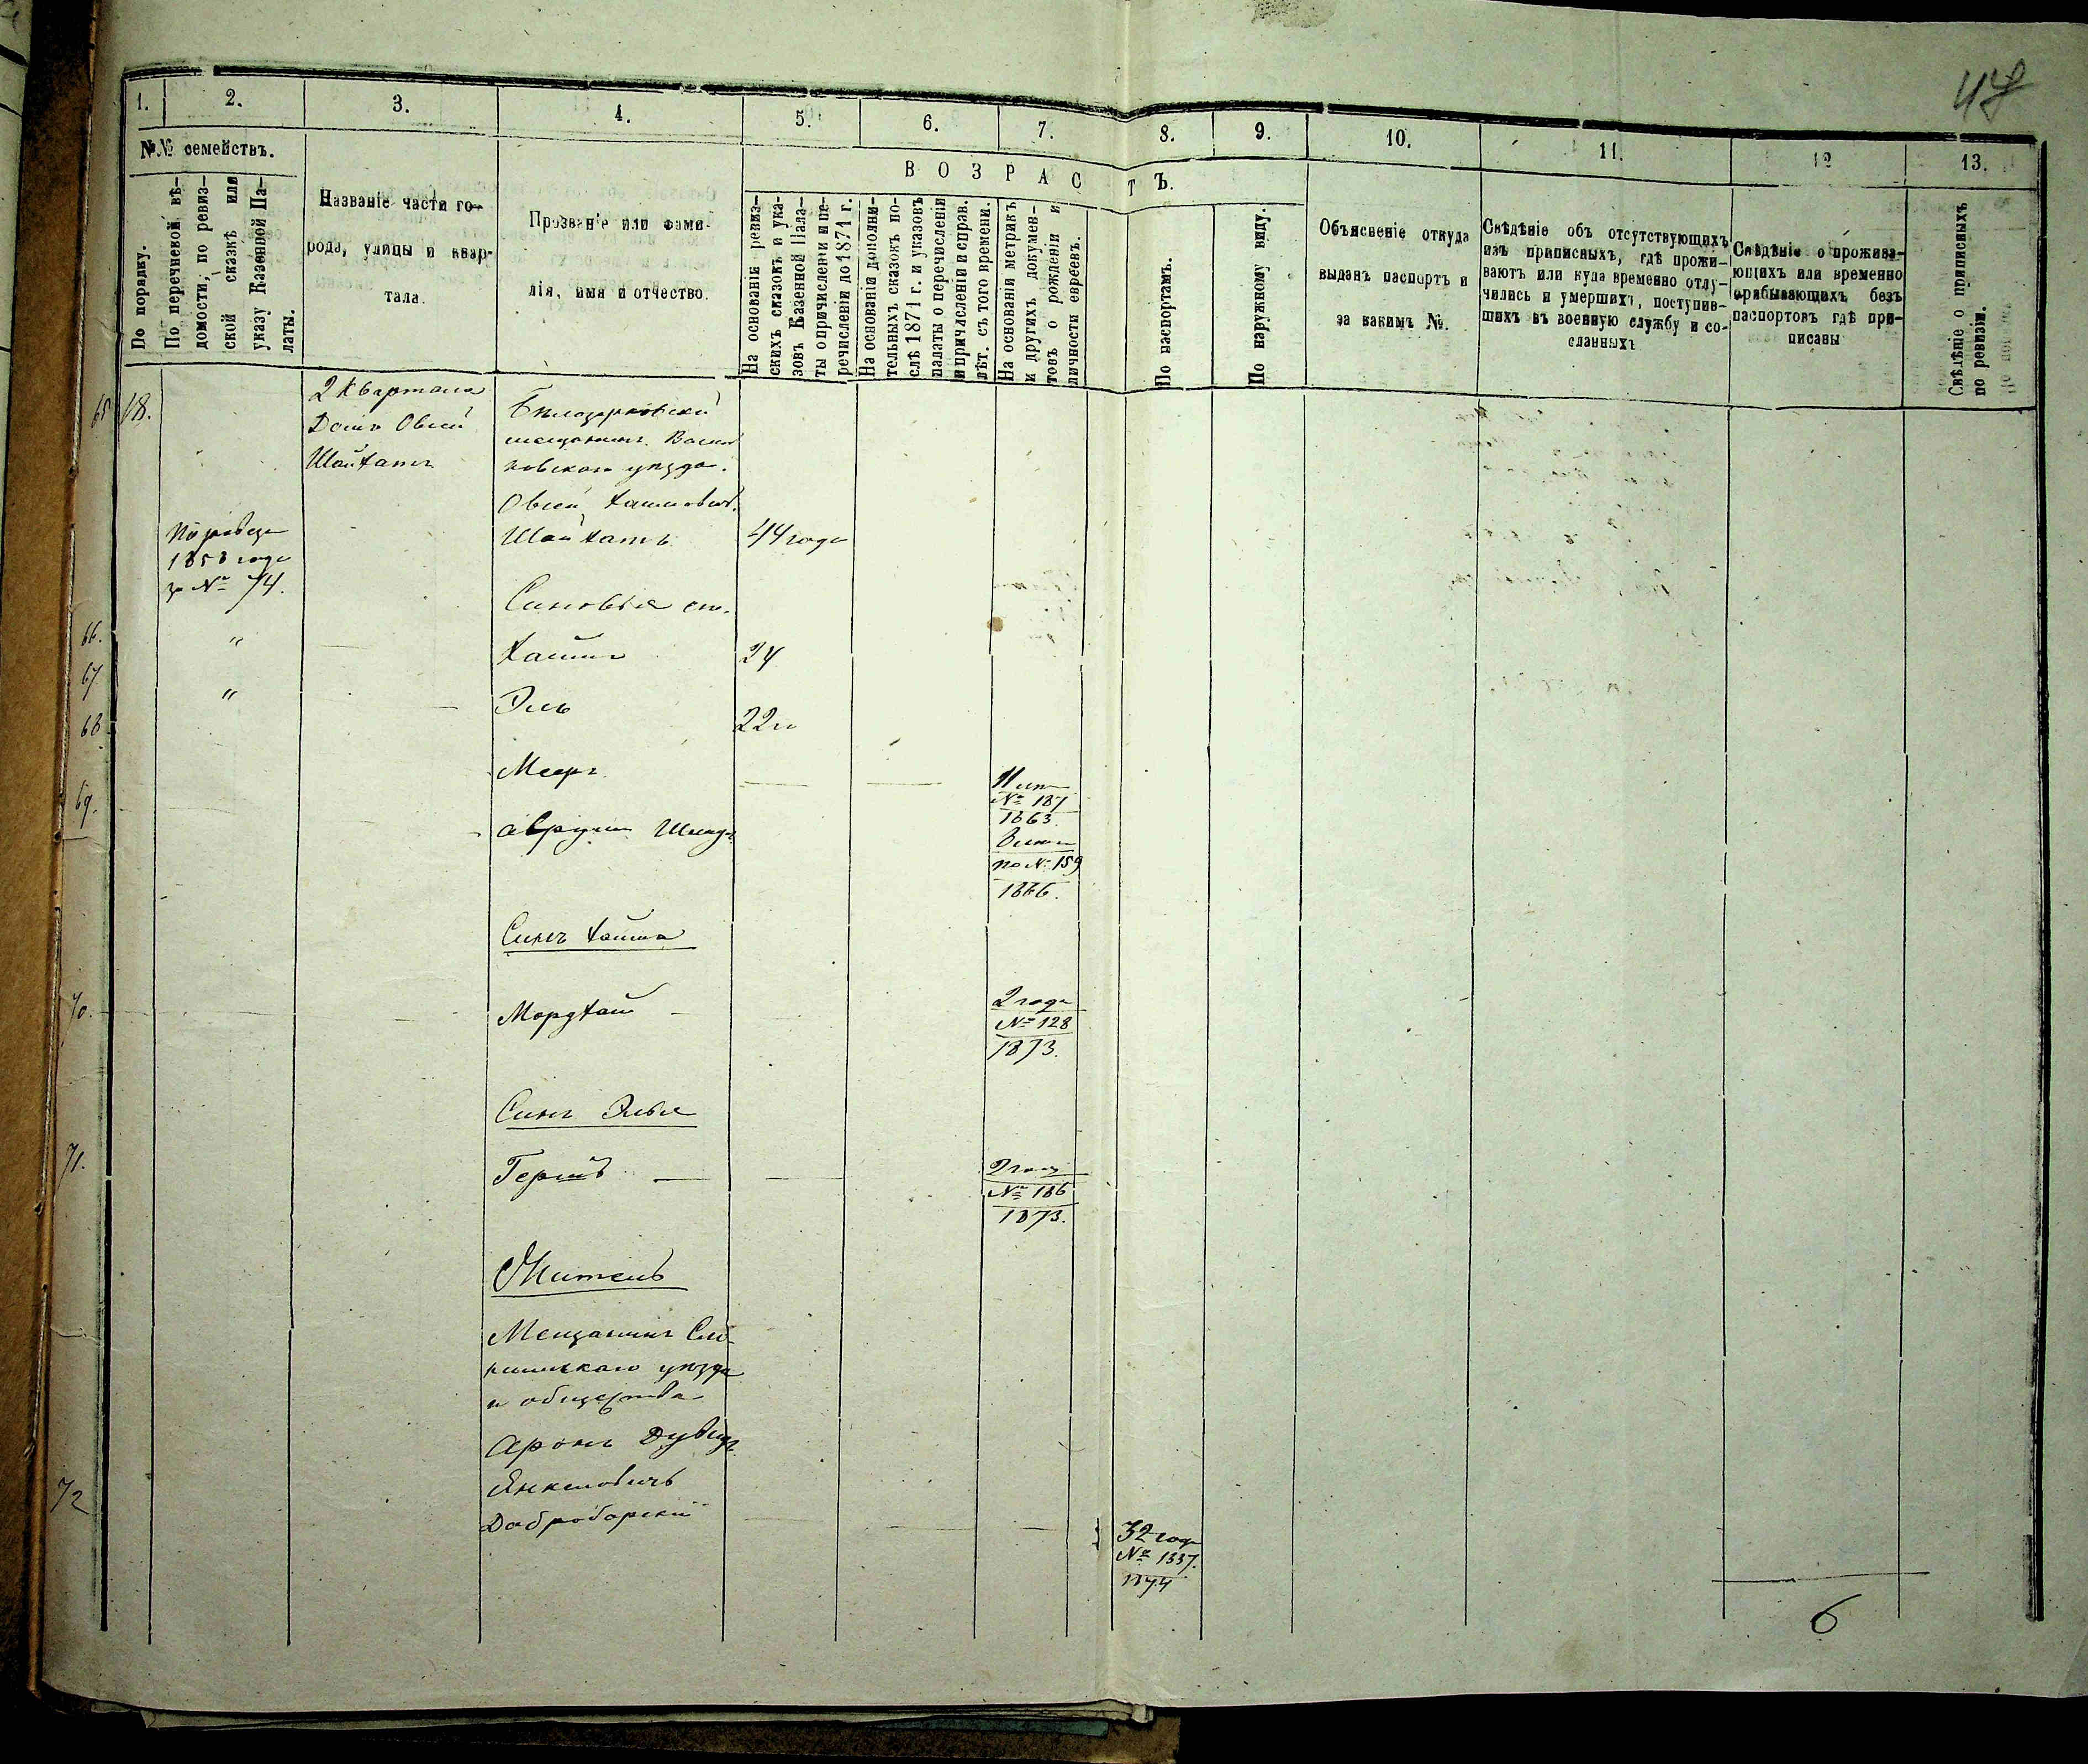 47
1.
2.
3.
4.
5.
6.
7.
8.
9.
10.
11.
12
13.
№№ семействъ.
ВОЗРАСТЪ.
По порядку.
По перечневой вѣ-
домости, по ревиз-
ской сказкѣ или
указу Казенной Па-
латы.
Названіе части го-
рода, улицы и квар-
тала.
Прозваніе или фами-
лія, имя и отчество.
На основаніи ревиз-
скихъ сказокъ и ука-
зовъ Казенной Пала-
ты о причисленіи и пе-
речисленіи до 1871 г.
На основаніи дополни-
тельныхъ сказокъ по-
слѣ 1871 г. и указовъ
палаты о перечисленіи
и причисленіи и справ.
лѣт. съ того времени.
На основаніи метрикъ
и другихъ докумен-
товъ о рожденіи и
личности евреевъ.
По паспортамъ.
По наружному виду.
Объясненіе откуда
выданъ паспортъ и
за какимъ №.
Свѣдѣніе объ отсутствующихъ
изъ приписныхъ, гдѣ прожи-
ваютъ или куда временно отлу-
чились и умершихъ, поступив-
шихъ въ военную службу и со-
сланныхъ
Свѣдѣніе о прожива-
ющихъ или временно
прибывающихъ безъ
паспортовъ гдѣ при-
писаны
Свѣдѣніе о приписныхъ
по ревизіи.
65
18.
2 квартала
Домъ Овсей
Шайхатъ
Бѣлоцерковскій
мещанинъ Василь
ковскаго уѣзда.
Овсей Хаимовичъ
Шайхатъ
44 года
По ревизіи
1858 года
за № 74.
Сыновья его.
66.
"
Хаимъ
24
67
"
Эль
22
68
Мееръ
11 лѣт
№ 187
1863.
69.
Аврумъ
8 лѣтъ
по № 159
1866.
Сынъ Хаима
70.
Мордхай
2 года
№ 128
1873.
Сынъ Эльи
71.
Гершъ
2 года
№ 186
1873.
Житель
Мещанинъ Сло-
нимскаго уѣзда
и общества
Аронъ Дувидъ
Янкеловичъ
72
Доброборскій
32 года
№ 1337.
1874
6